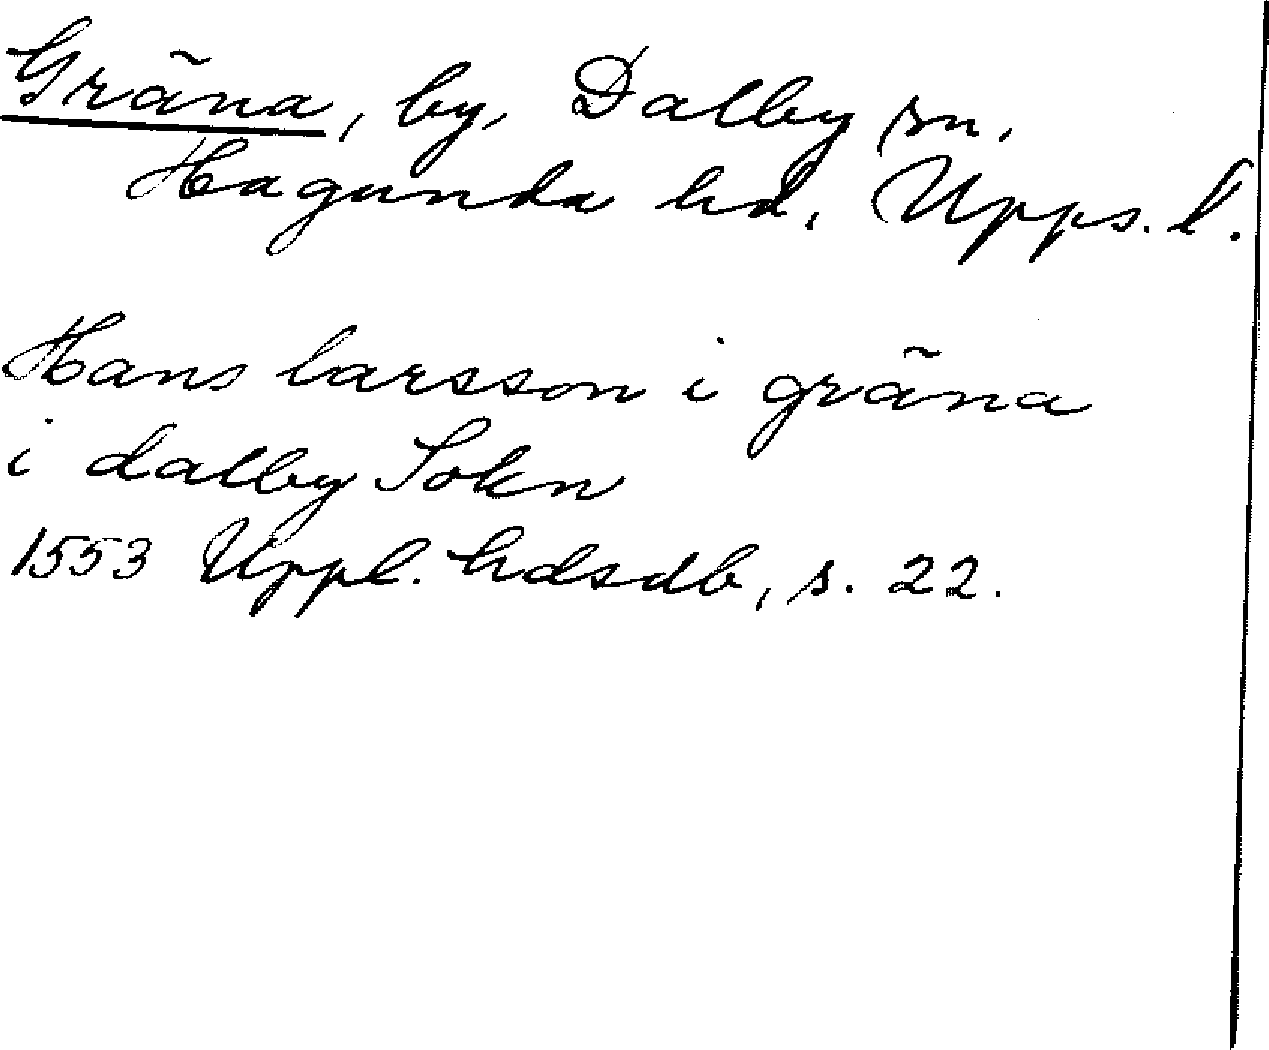 Gräna, by, Dalby sn.
Hagunda hd. Upps. l.
Hans larsson i gräna
i dalby Sokn
1553 Uppl. hdsdb, s. 22.